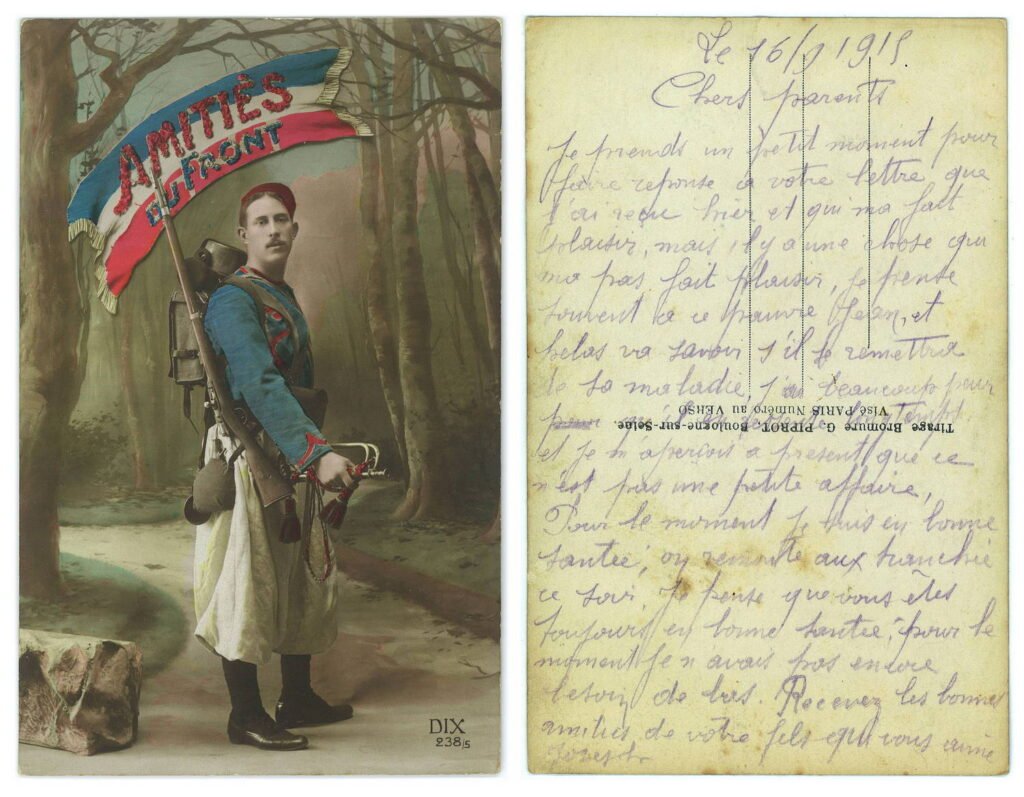 AMITIÉS
DU FRONT
DIX
238/5
Le 16/9 1915
Chers parents
Je prends un petit moment pour
faire reponse a votre lettre que
j'ai reçu hier et qui ma fait
plaisir, mais il y a une chose qui
ma pas fait plaisir, je pense
souvent a ce pauvre Jean, et
helas va savoir s'il se remettra
de sa maladie, j'ai beaucoup peur
Tirage Bromure G. PIPROT, Boulogne-sur-Seine.
Visé PARIS Numéro au VERSO
et je m'aperçois a present que ce
n'est pas une petite affaire,
Pour le moment je suis en bonne
santée, on remonte aux tranchée
ce soir. Je pense que vous êtes
toujours en bonne santée, pour le
moment je n avais pas encore
besoin de bas. Recevez les bonnes
amitiés de votre fils qui vous aime